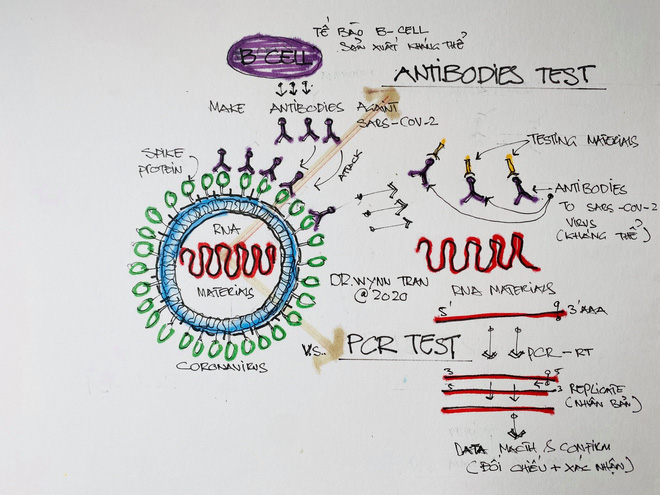 B-CELL
TẾ BÀO B-CELL
SẢN XUẤT KHÁNG THỂ
ANTIBODIES TEST
MAKE ANTIBODIES AGAINT
SARS-COV-2
ATTACK
SPIKE
PROTEIN
TESTING MATERIALS
ANTIBODIES
TO SARS-COV-2
VIRUS
(KHÁNG THỂ)
RNA
MATERIALS
CORONAVIRUS
DR.WYNN TRAN
@2020
RNA MATERIALS
5' 3'AAA
V.S.. PCR TEST
PCR-RT
3 5
5 3
REPLICATE
(NHÂN BẢN)
DATA MACTH & CONFIRM
(ĐỐI CHIẾU + XÁC NHẬN)